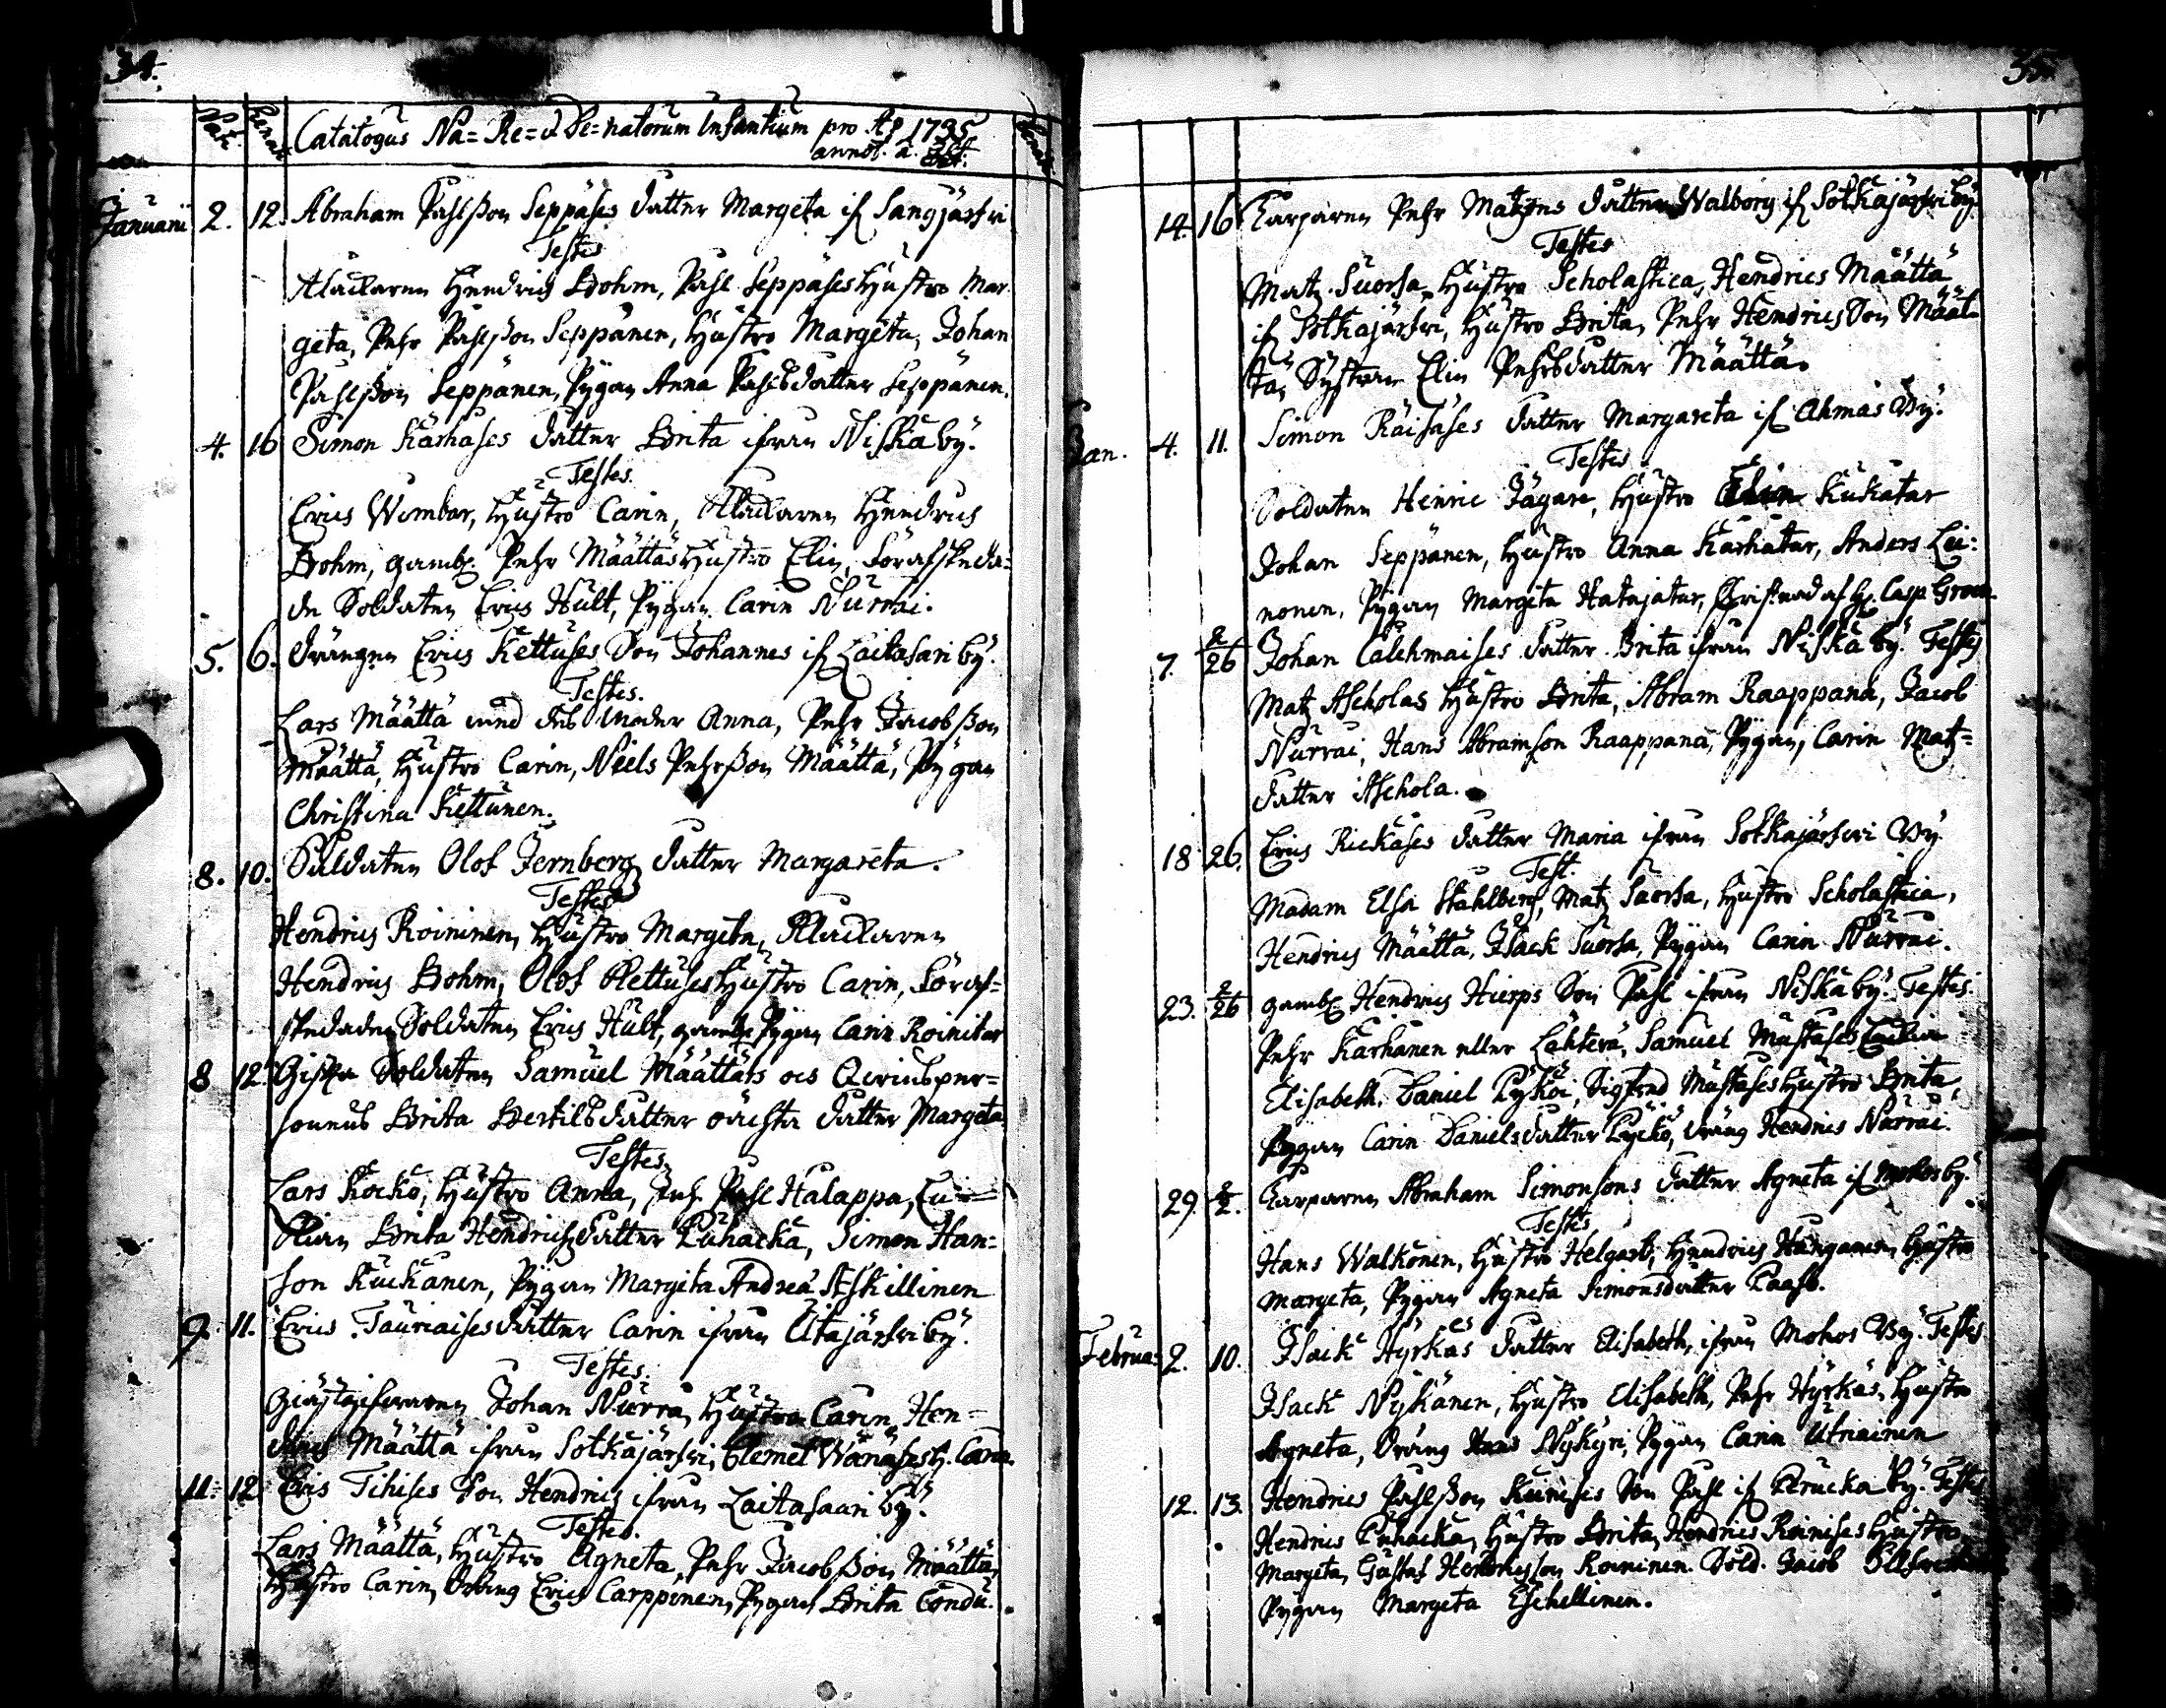 34.
Nat. Renat. Catalogus Na= Re= & De= natorum Infantium pro Aõ 1735
annot. a.
Januarii 2. 12. Abraham Påhlßon Seppäses datter Margeta if Sangjärfwi
Testes
Klockaren Hendrich Bohm, Påhl Seppäses Hustro Mar
geta, Pehr Påhlßon Seppänen, Hustro Margeta, Johan
Påhlßon Seppänen, Pygan Anna Påhlsdatter Seppänen.
4. 16 Simon Kärhäses datter Brita ifrån Niskaby.
Testes.
Erics Wimbar, Hustro Carin, Klockaren Hendrics
Bohm, gambl. Pehr Määttäs Hustro Elin, Förafskeda=
de Soldaten Erics Hult, Pygan Carin Nurrai.
5. 6. Drängen Erics Kettuses Son Johannes if Laitasari by.
Testes.
Lars Määttä med des Moder Anna, Pehr Jacobßon
Määttä, Hustro Carin, Neels Pehrßon Määttä, Pygan
Christina Kettunen.
8. 10. Soldaten Olof Jernberg datter Margareta.
Testes
Hendrics Roininen, Hustro Margeta, Klockaren
Hendrics Bohm, Olof Kettuses Hustro Carin, Föraf=
skedaden Soldaten Erics Hult, gambl Pygan Carin Roinitar
8 12. Gifta Soldaten Samuel Määttäs ocs Qwinsper=
sonens Brita Bertilsdatter oächta datter Margeta
Testes.
Lars Kocko, Hustro Anna, Påhl Halappa, En=
Brita Hendricsdatter Puhacka, Simon Han=
son Kuckanen, Pygan Margeta Andrea Äskillinen
9. 11. Erics Tauriaises datter Carin ifrån Utajärfwi by.
Testes.
Giästgifwaren Johan Nurra, Hustro Carin, Hen=
drics Määttä ifrån Sotkajärfwi, Clemet Wänäses H. Carin.
11. 12 Erics Tihises Son Hendrics ifrån Laitasaari by.
Testes.
Lars Määttä, Hustro Agneta, Pehr Jacobßon Määttä,
Hustro Carin, Dräng Erics Carppinen, Pygan Brita Condu.
14. 16 Pehr Matzens datter Walborg if Sotkajärfwi by
Testes
Matz Suorsa, Hustro Scholastica, Hendrics Määttä
if Sotkajärfwi, Hustro Brita, Pehr Hendrics Son Määt=
tä, Systern Elin Pehrsdatter Määttä.
Jan. 4. 11. Simon Räisäses datter Margareta if Ahmas By.
Testes
Soldaten Henric Jägare, Hustro Elin Kukatar
Johan Seppänen, Hustro Anna Karhatar, Anders Lei=
nonen, Pygan Margeta Hatajatar, Christnad af H. Casp. Groen.
7. 26 Johan Calehmaises datter Brita ifrån Niska by. Testes
Matz Ascholas Hustro Brita, Abram Raappana, Jacob
Nurrai, Hans Abramson Raappana, Pygan, Carin Matz=
datter Aschola.
18 26. Erics Rickäses datter Maria ifrån Sotkajärfwi By.
Test.
Madam Elsa Stahlberg, Matz Suorsa, Hustro Scholastica,
Hendrics Määttä, Isack Suorsa, Pygan Carin Nurrai.
23. 26 gambl Hendrics Hierps Son Påhl ifrån Niska by. Testes.
Pehr Karhanen eller Lähterä, Samuel Mustases
Elisabeth. Daniel Pyköi, Sigfred Mustases Hustro Brita,
Pygan Carin Danielsdatter Pyckö, dräng Hendrics Nurrai.
29. 2. Abraham Simonsons datter Agneta if Mohosby.
Testes
Hans Walkonen, Hustro Helgarb, Hendrics Hanganen, Hustro
Margeta, Pygan Agneta Simonsdatter Paaso.
Februa: 2. 10. Isack Hyrkäs datter Elisabeth, ifrån Mohos By. Testes
Isack Nykänen, Hustro Elisabeth, Pehr Hyrkäs, Hustro
Agneta, Dräng Hans Nykyri, Pygan Carin Utriainen
12. 13. Hendrics Påhlßon Kunises Son Påhl if Krucka By. Testes
Hendrics Puhacka, Hustro Brita, Hendrics Roinises Hustro
Margeta, Gustaf Hendricsson Roininen. Sold. Jacob
Pygan Margeta Eschellinen.